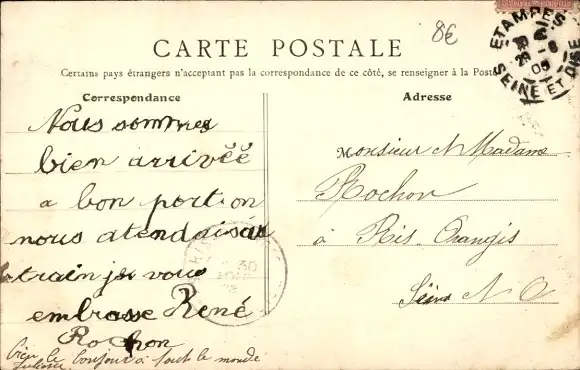 8€
ETAMPES
29 -6
05
SEINE ET OISE
CARTE POSTALE
Certains pays étrangers n'acceptant pas la correspondance de ce côté, se renseigner à la Poste
Correspondance
Nous sommes
bien arrivéé
a bon port on
nous atendaisau
train je vous
embrasse René
Rochon
bien le bonjour à tout le monde
Adresse
Monsieur Madame
Rochon
à Ris-Orangis
Seine
30